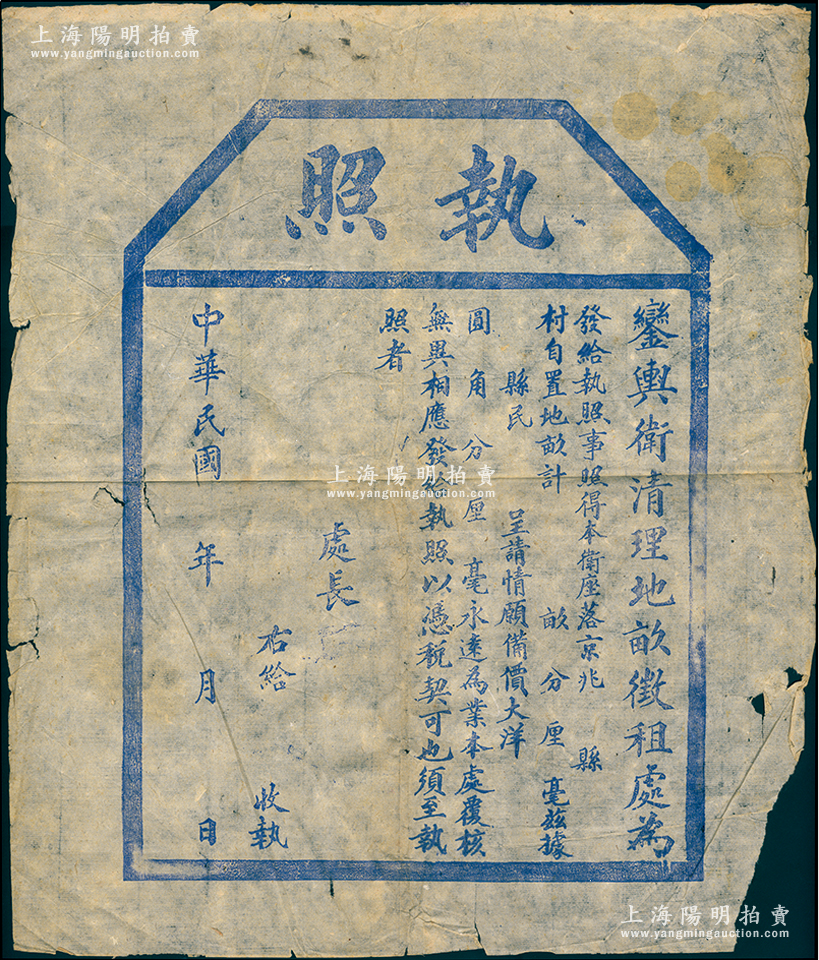 上海陽明拍賣
www.yangmingauction.com
執照
鑾輿衛清理地畝徵租處為
發給執照事照得本衛座落京兆 縣
村自置地畝計 畝 分 厘 毫茲據
縣民 呈請情願備價大洋
圓 角 分 厘 毫永遠為業本處覆核
無異相應發給執照以憑稅契可也須至執
照者
處長
右給 收執
中華民國 年 月 日
上海陽明拍賣
www.yangmingauction.com
上海陽明拍賣
www.yangmingauction.com